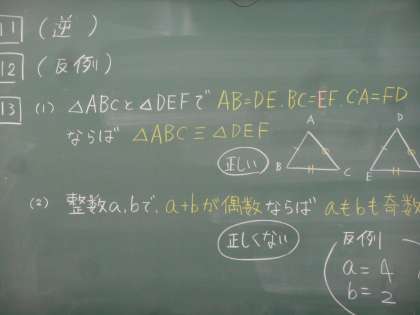 11 (逆)
12 (反例)
13 (1) △ABCと△DEFで AB=DE.BC=EF.CA=FD
ならば △ABC≡△DEF
正しい
A
B
C
D
E
(2) 整数a,bで、a+bが偶数ならば aもbも奇数
正しくない
反例
a=4
b=2